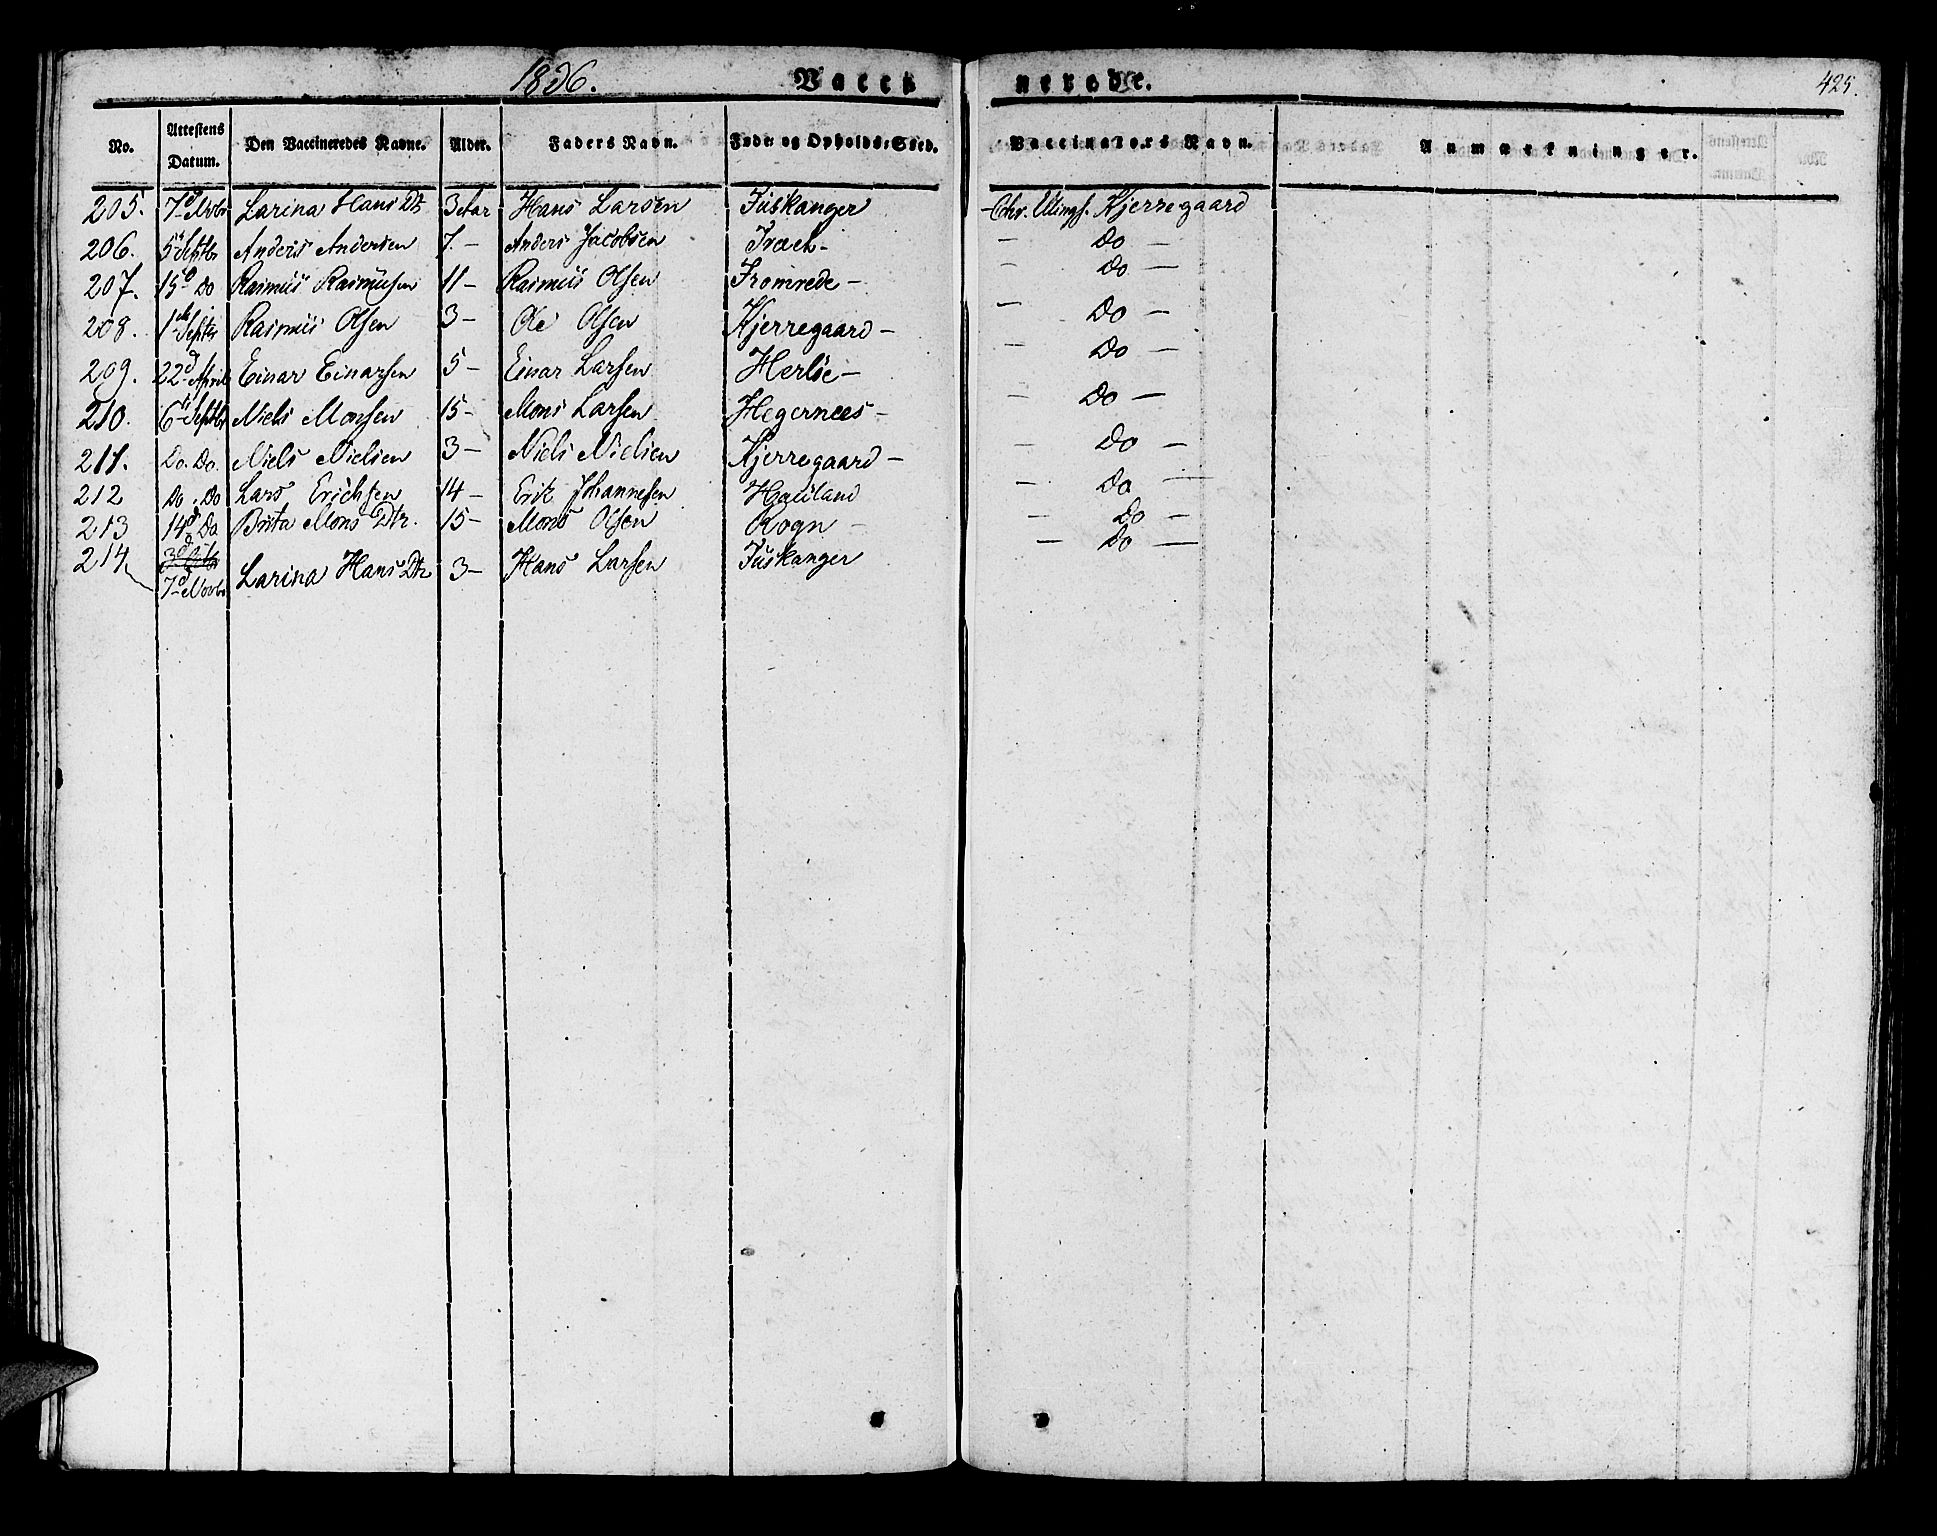 1836. Vacci nerede. 425.
No. Attestens Datum. Den Vaccineredes Navne. Alder. Faders Navn. Føde- og Opholds-Sted. Vaccinateurs Navn. Anmærkninger.
205. 7d Novbr Larina Hans Dtr 3 Aar Hans Larsen Tuskanger Chr. Kjerregaard
206. 5 Septbr Anders Andersen 7 – Anders Jacobsen – Do –
207. 15d Do Rasmus Rasmusen 11 – Rasmus Olsen Fromrede – – Do –
208. 1 Septbr Rasmus Olsen 3 – Ole Olsen Kjerregaard – – Do –
209. 22d April Einar Einarsen 5 – Einar Larsen Herløe – – Do –
210. 6 Septbr Niels Monsen 15 – Mons Larsen Hegernees – – Do –
211. Do. Do. Niels Nielsen 3 – Niels Nielsen Kjerregaard – – Do –
212 Do. Do Lars Erichsen 14 – Erik Johannesen Hauland – Do –
213 14d Do Brita Mons Dtr. 15 – Mons Olsen Rogn – – Do –
214. 7d Novbr Larina Hans Dtr 3 – Hans Larsen Tuskanger – Do –